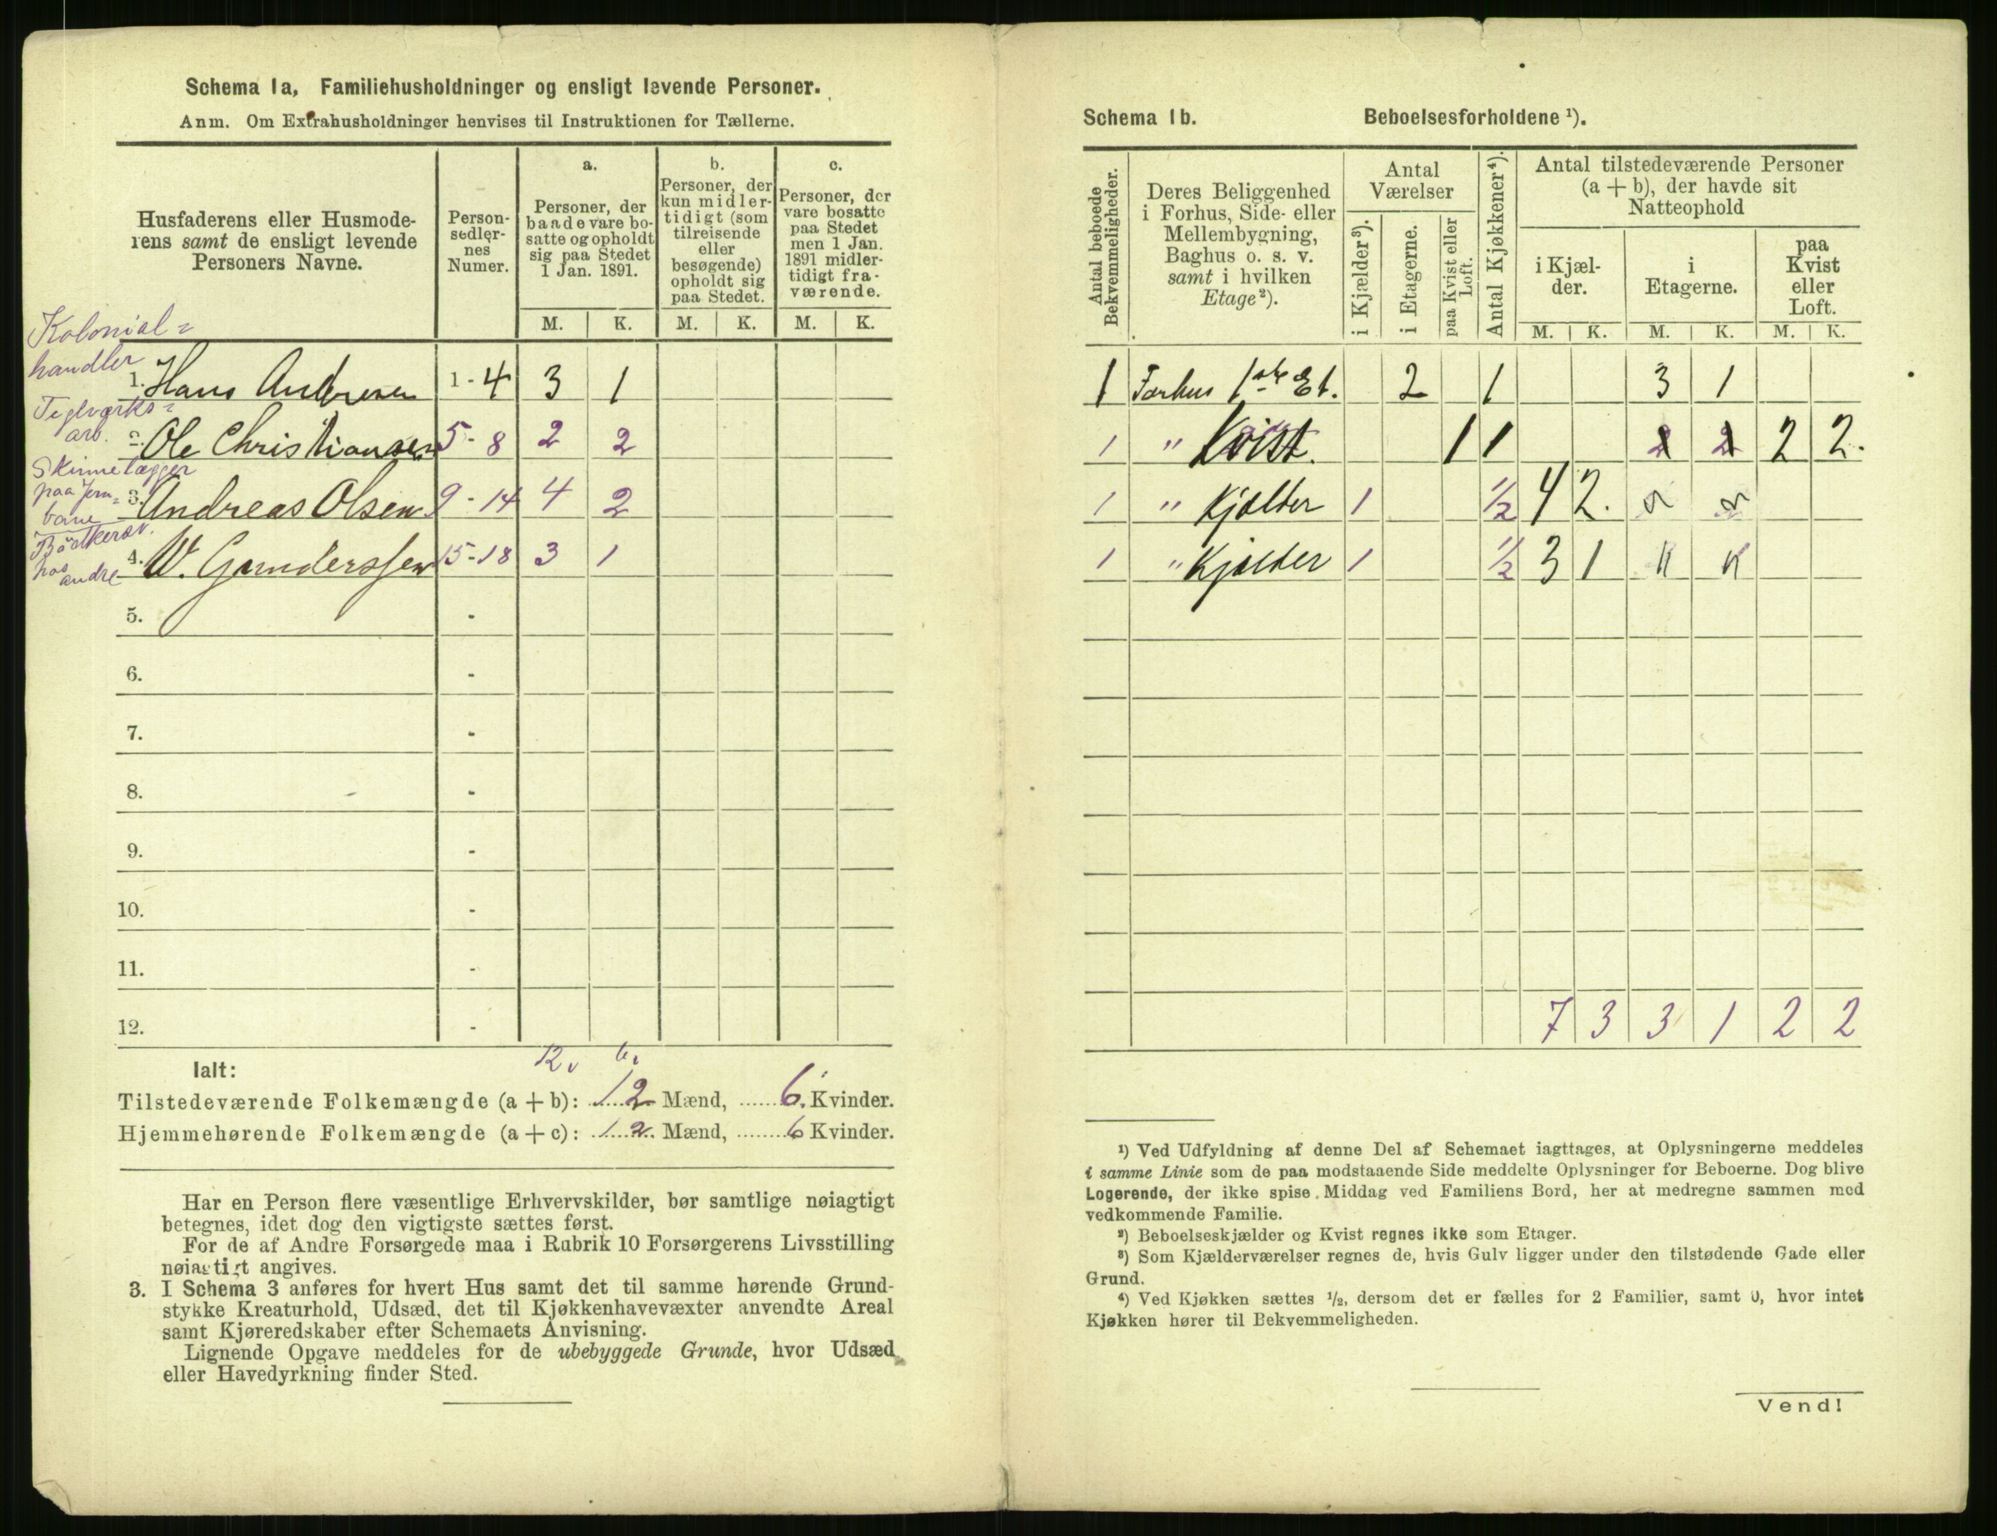 Schema 1a. Familiehusholdninger og ensligt levende Personer.
Anm. Om Extrahusholdninger henvises til Instruktionen for Tællerne.
Husfaderens eller Husmode-
rens samt de ensligt levende
Personers Navne.
Person-
sedler-
nes
Numer.
a.
Personer, der
baade vare bo-
satte og opholdt
sig paa Stedet
1 Jan. 1891.
b.
Personer, der
kun midler-
tidigt (som
tilreisende
eller
besøgende)
opholdt sig
paa Stedet.
c.
Personer, der
vare bosatte
paa Stedet
men 1 Jan.
1891 midler-
tidigt fra-
værende.
M. K. M. K. M. K.
Kolonial=
handler
1. Hans Andresen 1-4 3 1
Teglværks=
arb.
2. Ole Christiansen 5-8 2 2
Skinnelægger
paa Jern=
bane
3. Andreas Olsen 9-14 4 2
Bødkersv.
hos
andre
4. W. Gunderssen 15-18 3 1
5. -
6. -
7. -
8. -
9. -
10. -
11. -
12. -
Ialt:
12 6
Tilstedeværende Folkemængde (a + b): 12 Mænd, 6 Kvinder.
Hjemmehørende Folkemængde (a + c): 12 Mænd, 6 Kvinder.
Har en Person flere væsentlige Erhvervskilder, bør samtlige nøiagtigt
betegnes, idet dog den vigtigste sættes først.
For de af Andre Forsørgede maa i Rubrik 10 Forsørgerens Livsstilling
nøiagtigt angives.
3. I Schema 3 anføres for hvert Hus samt det til samme hørende Grund-
stykke Kreaturhold, Udsæd, det til Kjøkkenhavevæxter anvendte Areal
samt Kjøreredskaber efter Schemaets Anvisning.
Lignende Opgave meddeles for de ubebyggede Grunde, hvor Udsæd
eller Havedyrkning finder Sted.
Schema 1b. Beboelsesforholdene ¹).
Antal beboede
Bekvemmeligheder.
Deres Beliggenhed
i Forhus, Side- eller
Mellembygning,
Baghus o. s. v.
samt i hvilken
Etage²).
Antal
Værelser
i Kjælder³).
i Etagerne.
paa Kvist eller
Loft.
Antal Kjøkkener⁴).
Antal tilstedeværende Personer
(a + b), der havde sit
Natteophold
i Kjæl-
der.
i
Etagerne.
paa
Kvist
eller
Loft.
M. K. M. K. M. K.
1 Forhus 1ste Et. 2 1 3 1
1 " Kvist. 1 1 2 2 2 2.
1 " Kjælder 1 1/2 4 2.
1 " Kjælder 1 1/2 3 1
7 3 3 1 2 2
¹) Ved Udfyldning af denne Del af Schemaet iagttages, at Oplysningerne meddeles
i samme Linie som de paa modstaaende Side meddelte Oplysninger for Beboerne. Dog blive
Logerende, der ikke spise Middag ved Familiens Bord, her at medregne sammen med
vedkommende Familie.
²) Beboelseskjælder og Kvist regnes ikke som Etager.
³) Som Kjælderværelser regnes de, hvis Gulv ligger under den tilstødende Gade eller
Grund.
⁴) Ved Kjøkken sættes 1/2, dersom det er fælles for 2 Familier, samt 0, hvor intet
Kjøkken hører til Bekvemmeligheden.
Vend!